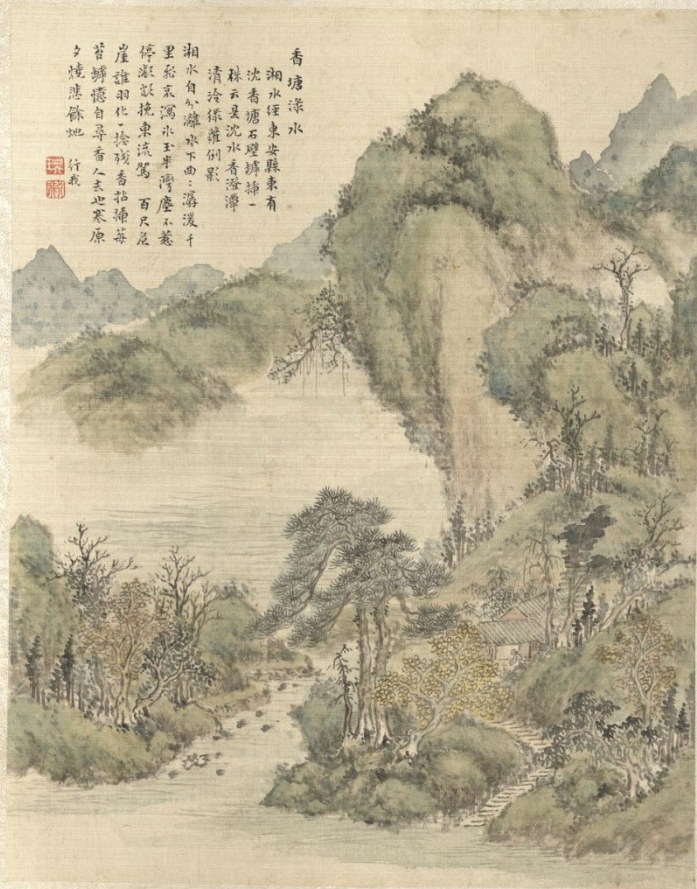 香塘渌水
湘水經東安縣東有
沈香塘石壁罅插一
株云是沈水香澄潭
清冷綠蘿倒影
湘水自分灕水下曲曲潺湲千
里瀉水玉半灣塵不惹
停凝㶑挽東流駕 百尺危
崖誰羽化一捻殘香拈插莓
苔罅憶自尋香人去也寒原
夕燒悲餘灺